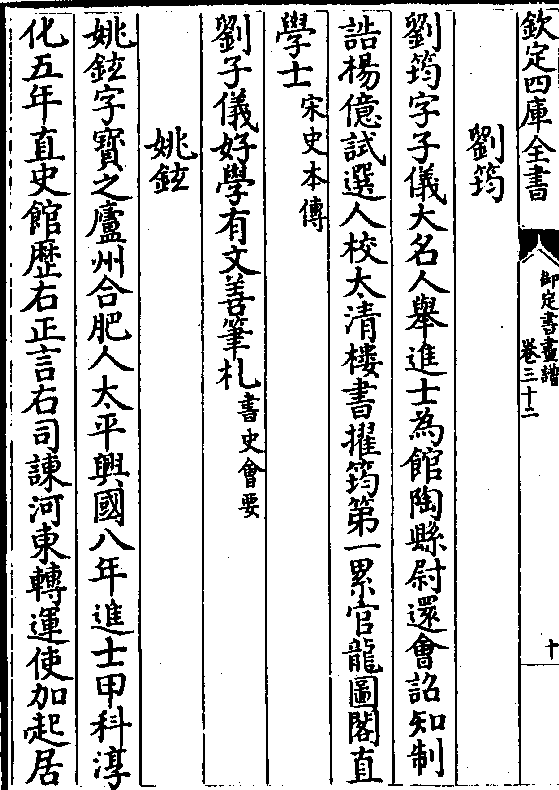 欽定四庫全書
御定書畫譜
卷三十二
十
劉筠
劉筠字子儀大名人舉進士為館陶縣尉還會詔知制
誥楊億試選人校太清樓書擢筠第一累官龍圖閣直
學士宋史本傳
劉子儀好學有文善筆札書史會要
姚鉉
姚鉉字寶之廬州合肥人太平興國八年進士甲科淳
化五年直史館歴右正言右司諫河東轉運使加起居